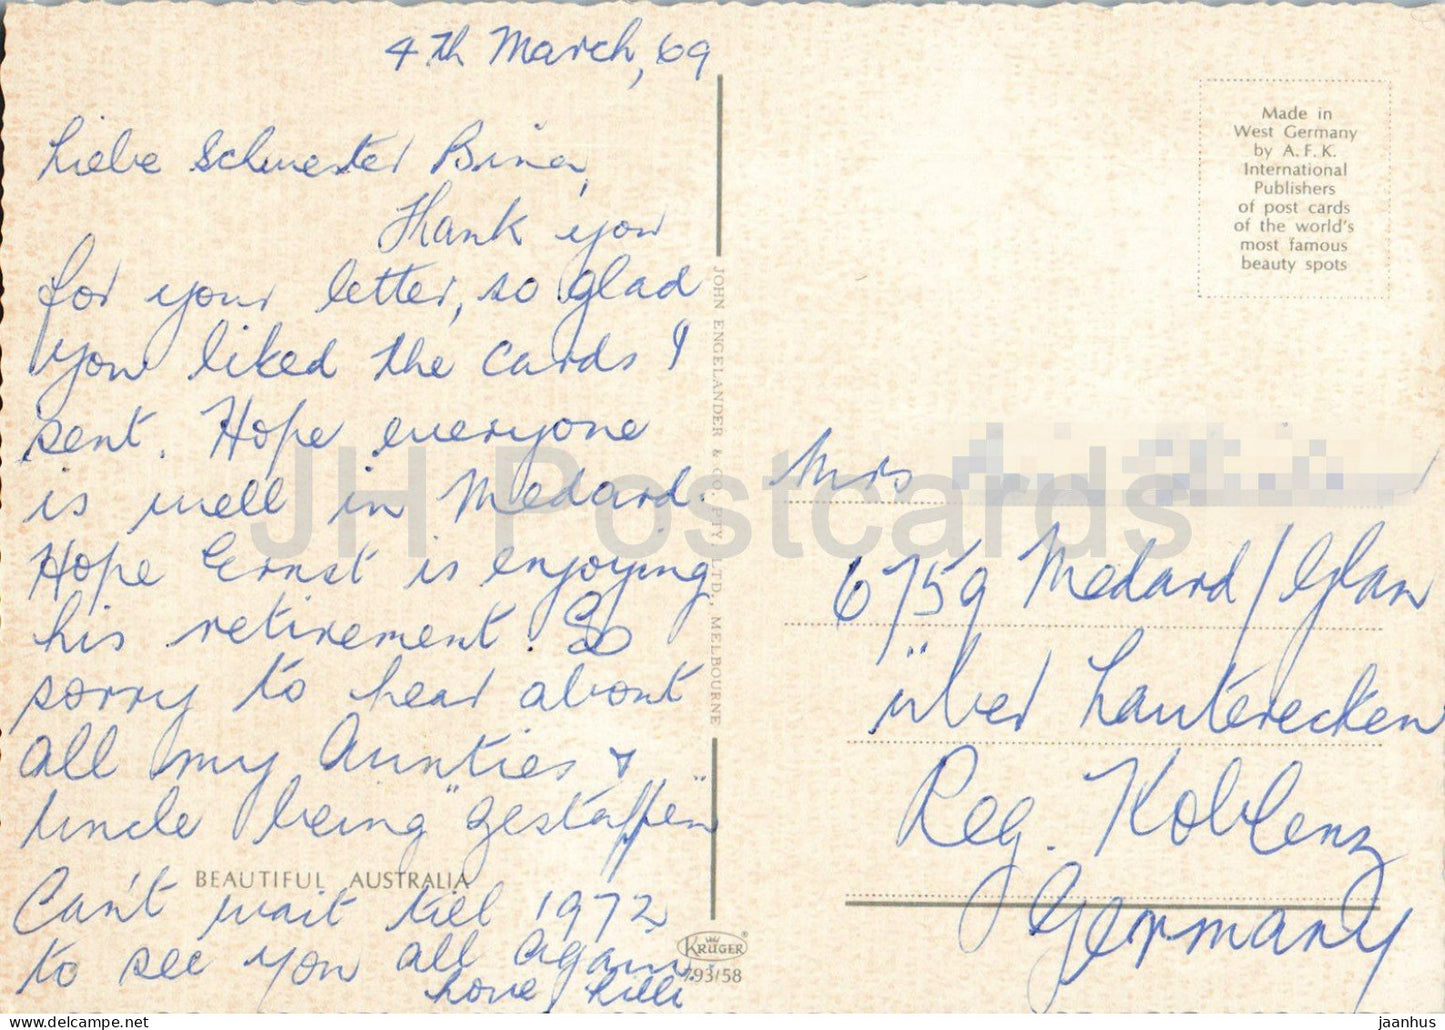 4th March, 69
Liebe Schwester Bina,
Thank you
for your letter, so glad
you liked the cards I
sent. Hope everyone
is well in Medard.
Hope Ernst is enjoying
his retirement. So
sorry to hear about
all my Aunties &
Uncle being "gestorben"
Can't wait till 1972
to see you all again.
Love Killi
BEAUTIFUL AUSTRALIA
JOHN ENGELANDER & CO. PTY. LTD., MELBOURNE
KRÜGER
793/58
Made in
West Germany
by A. F. K.
International
Publishers
of post cards
of the world's
most famous
beauty spots
Mrs
6759 Medard/Glan
über Lauterecken
Reg. Koblenz
Germany
JH Postcards
https://www.delcampe.net
jaanhus